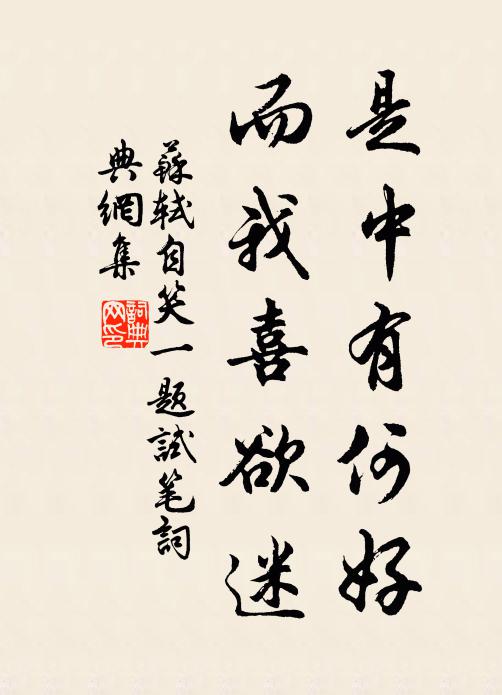 是中有何好
而我喜欲迷
蘇軾自笑一题試笔詞
典網集
詞典网印